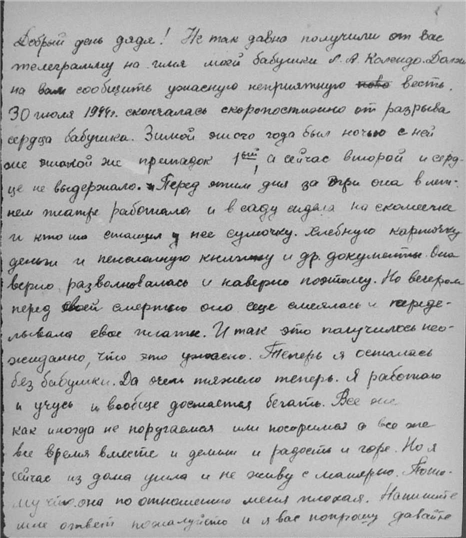 Добрый день дядя! Не так давно получили от вас
телеграмму на имя моей бабушки Л. А. Календо. Долж
на вам сообщить ужасную неприятную весть.
30 июля 1944г. скончалась скоропостижно от разрыва
сердца бабушка. Зимой этого года был ночью с ней
же такой же припадок 1ый, а сейчас второй и серд-
це не выдержало. Перед этим дня за три она в лет-
нем театре работала и в саду сидела на скамейке
и кто то стащил у нее сумочку. Хлебную карточку
деньги и пенсионную книжку и др. документы. Она
верно разволновалась и наверно поэтому. Но вечером
перед своей смертью она еще смеялась и переде-
лывала свое платье. И так это получилось нео-
жиданно, что это ужасно. Теперь я осталась
без бабушки. Да очень тяжело теперь. Я работаю
и учусь и вообще достается бегать. Все же
как иногда не поругаемся или поссоримся а все же
все время вместе и деньги и радость и горе. Но я
сейчас из дома ушла и не живу с матерью. Пото-
му что она по отношению меня плохая. Напишите
мне ответ пожалуйста и я вас попрошу давайте